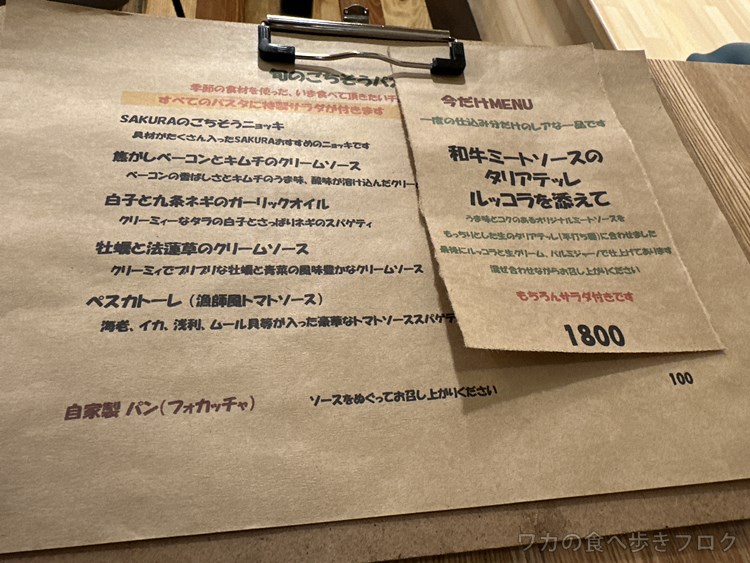 旬のごちそうパス
季節の食材を使った、いま食べて頂きたい
すべてのパスタに特製サラダが付きます
SAKURAのごちそうニョッキ
具材がたくさん入ったSAKURAおすすめのニョッキです
焦がしベーコンとキムチのクリームソース
ベーコンの香ばしさとキムチのうま味、酸味が溶け込んだクリー
白子と九条ネギのガーリックオイル
クリーミィーなタラの白子とさっぱりネギのスパゲティ
牡蠣と法蓮草のクリームソース
クリーミィでプリプリな牡蠣と青菜の風味豊かなクリームソース
ペスカトーレ(漁師風トマトソース)
海老、イカ、浅利、ムール貝等が入った豪華なトマトソーススパゲテ
自家製 パン(フォカッチャ)
ソースをぬぐってお召し上がりください
100
今だけMENU
一度の仕込み分だけのレアな一品です
和牛ミートソースの
タリアテッレ
ルッコラを添えて
うま味とコクのあるオリジナルミートソースを
もっちりとした生のタリアテッレ(平打ち麺)に合わせました
最後にルッコラと生クリーム、パルミジャーノで仕上げてあります
混ぜ合わせながらお召し上がりください
もちろんサラダ付きです
1800
ワカの食べ歩きブログ